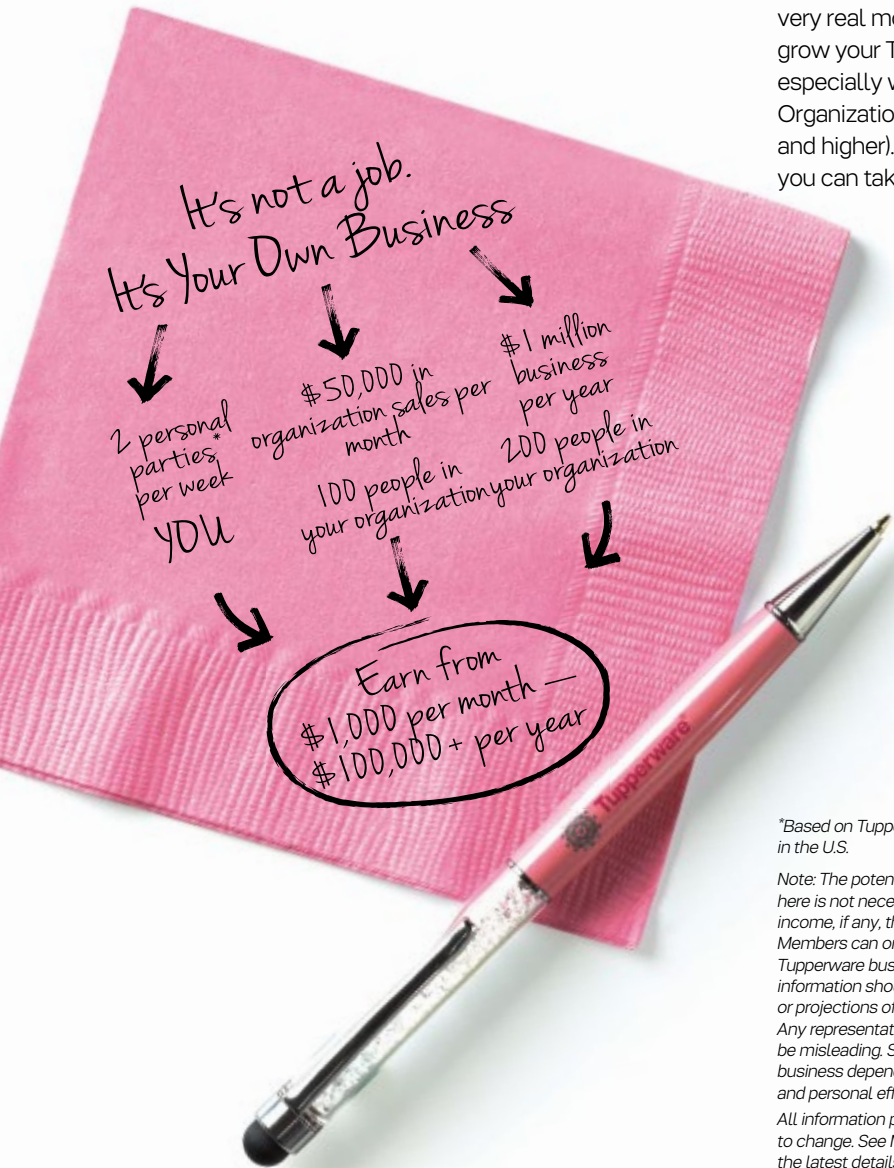 very real m
grow your T
especially w
Organizatio
and higher).
you can tak
It's not a job.
It's Your Own Business
2 personal
parties*
per week
YOU
$50,000 in
organization sales per
month
100 people in
your organization
$1 million
business
per year
200 people in
your organization
Earn from
$1,000 per month —
$100,000+ per year
Tupperware
*Based on Tupp
in the U.S.
Note: The poten
here is not nece
income, if any, th
Members can o
Tupperware bus
information shou
or projections of
Any representat
be misleading. S
business depen
and personal eff
All information p
to change. See
the latest detail